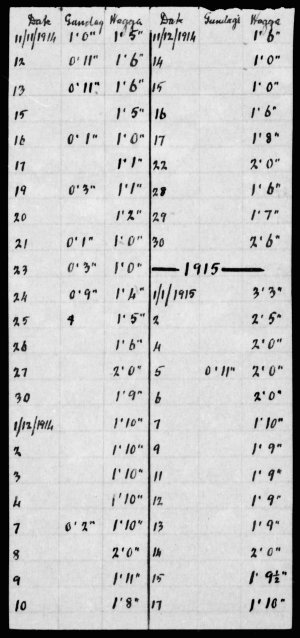 Date Gundagi Wagga Date Gundagi Wagga
11/11/1914 1'0" 1'5" 11/12/1914 1'6"
12 0'11" 1'6" 14 1'0"
13 0'11" 1'6" 15 1'0"
15 1'5" 16 1'6"
16 0'1" 1'0" 17 1'8"
17 1'1" 22 2'0"
19 0'3" 1'1" 28 1'6"
20 1'2" 29 1'7"
21 0'1" 1'0" 30 2'6"
23 0'3" 1'0" — 1915 —
24 0'9" 1'4" 1/1/1915 3'3"
25 1'5" 2 2'5"
26 1'6" 4 2'0"
27 2'0" 5 0'11" 2'0"
30 1'9" 6 2'0"
1/12/1914 1'10" 7 1'10"
2 1'10" 9 1'9"
3 1'10" 11 1'9"
4 1'10" 12 1'9"
7 0'2" 1'10" 13 1'9"
8 2'0" 14 2'0"
9 1'11" 15 1'9½"
10 1'8" 17 1'10"